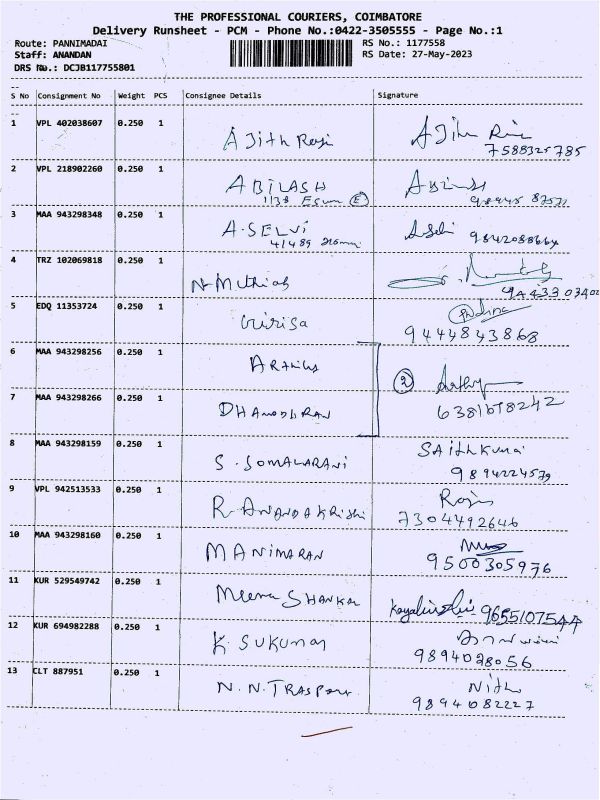 THE PROFESSIONAL COURIERS, COIMBATORE
Delivery Runsheet - PCM - Phone No.:0422-3505555 - Page No.:1
Route: PANNIMADAI RS No.: 1177558
Staff: ANANDAN RS Date: 27-May-2023
DRS No.: DCJB117755801
S No Consignment No Weight PCS Consignee Details Signature
1 VPL 402038607 0.250 1
Ajith Raj
7588325785
2 VPL 218902260 0.250 1
ABILASH
3 MAA 943298348 0.250 1
A.SELVi
41489
4 TRZ 102069818 0.250 1
N. Muthiah
5 EDQ 11353724 0.250 1
Girisa 9444843868
6 MAA 943298256 0.250 1
2
7 MAA 943298266 0.250 1
DHAMODHRAN
8 MAA 943298159 0.250 1
SAithKumar
S. SOMALARANi 9894224579
9 VPL 942513533 0.250 1
R. ANANDAKRISHI 7304492646
10 MAA 943298160 0.250 1
MANIMARAN 9500305976
11 KUR 529549742 0.250 1
Meena SHANKAR 9655107544
12 KUR 694982288 0.250 1
K SUKUMAR 9894028056
13 CLT 887951 0.250 1
Nithi
N.N.TRASPORT 9894082227